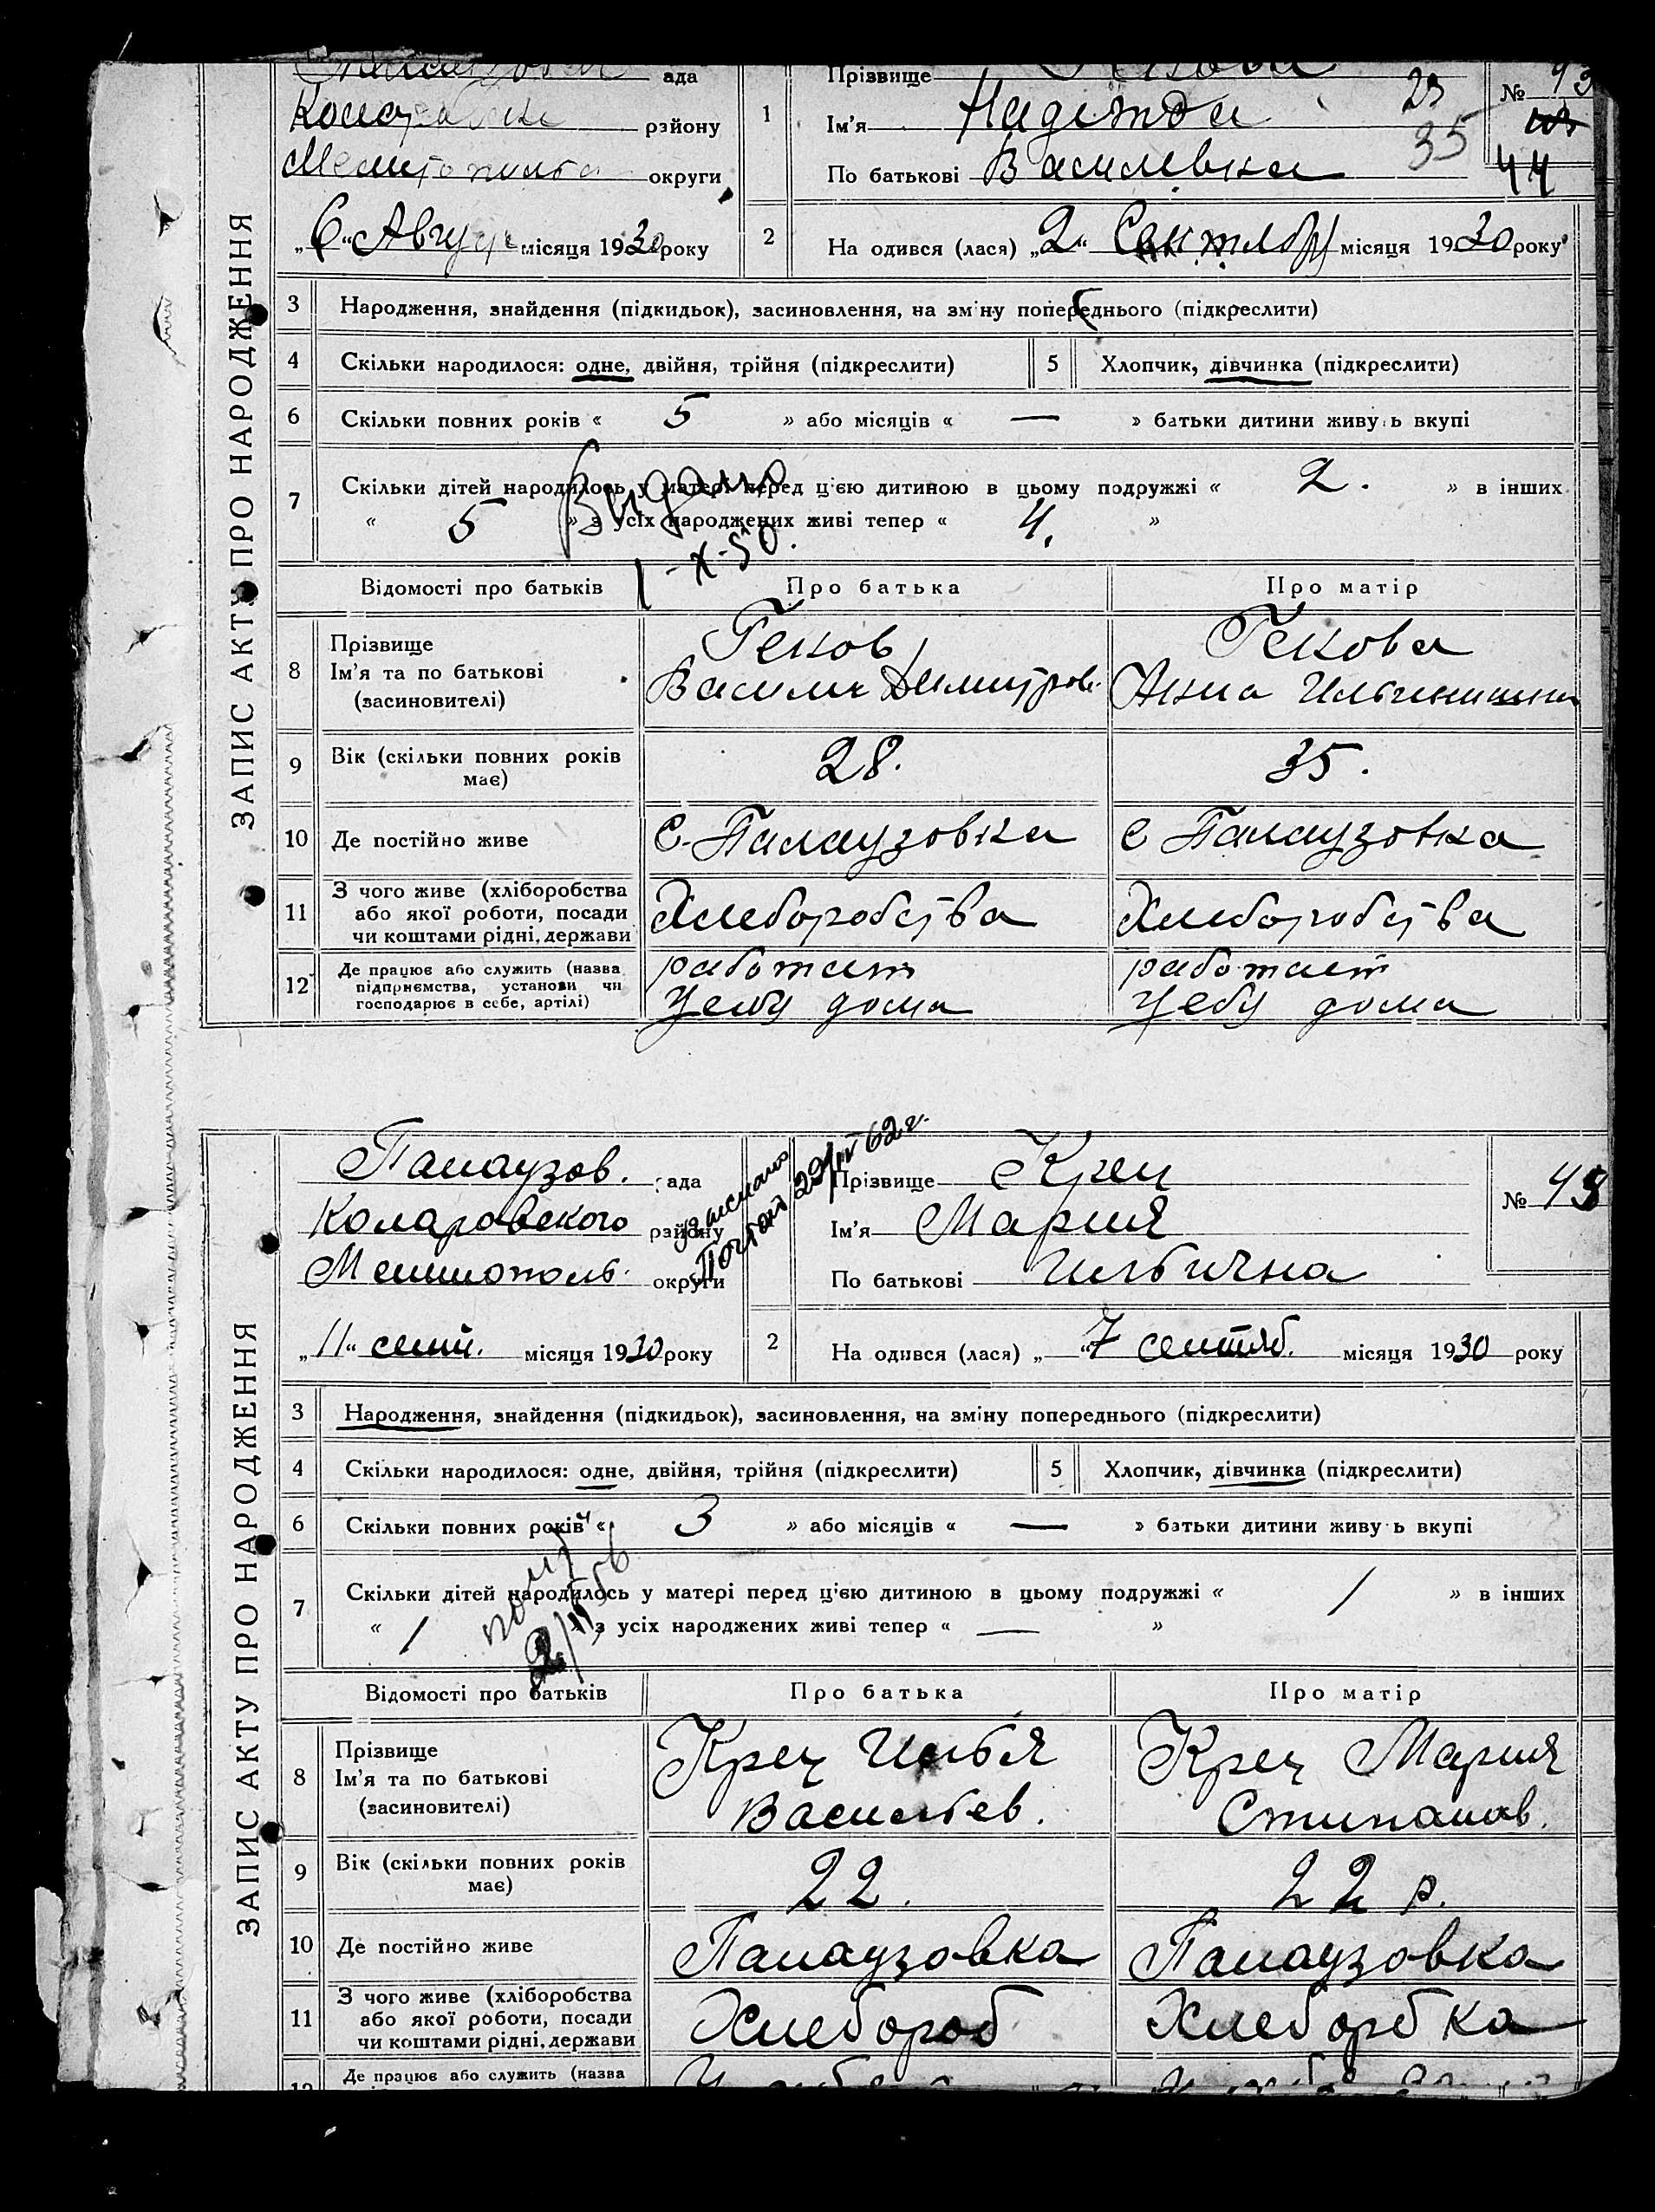 ЗАПИС АКТУ ПРО НАРОДЖЕННЯ
ада
району
округи
„6“ Август місяця 1930 року
1
Прізвище
Ім'я Надежда
По батькові Василевна
23
35
№ 43
44
2
На одився (лася) „2“ Сентября місяця 1930 року
3 Народження, знайдення (підкидьок), засиновлення, на зм ну попереднього (підкреслити)
4 Скільки народилося: одне, двійня, трійня (підкреслити)
5 Хлопчик, дівчинка (підкреслити)
6 Скільки повних років « 5 » або місяців « — » батьки дитини живу ь вкупі
7 Скільки дітей народилось у матері перед ц'єю дитиною в цьому подружжі « 2. » в інших
« 5 » з усіх народжених живі тепер « 4. »
Видано
1-X-50.
Відомості про батьків
Про батька
Про матір
8 Прізвище
Ім'я та по батькові
(засиновителі)
Геков
Василь Димитров.
Гекова
Анна Ильинишна
9 Вік (скільки повних років
має)
28.
35.
10 Де постійно живе
с. Палаузовка
с Палаузовка
11 З чого живе (хліборобства
або якої роботи, посади
чи коштами рідні, держави
Хлеборобства
Хлеборобства
12 Де працює або служить (назва
підприємства, установи чи
господарює в себе, артілі)
работает
у себу дома
работает
у себу дома
ЗАПИС АКТУ ПРО НАРОДЖЕННЯ
Палаузов. ада
Коларовского району
Мелитополь. округи
„11“ сент. місяця 1930 року
Почтой 29/IV 62 г.
Прізвище Крец
Ім'я Мария
По батькові Ильична
№ 45
2
На одився (лася) „7 сентяб. місяця 1930 року
3 Народження, знайдення (підкидьок), засиновлення, на зміну попереднього (підкреслити)
4 Скільки народилося: одне, двійня, трійня (підкреслити)
5 Хлопчик, дівчинка (підкреслити)
6 Скільки повних років « 3 » або місяців « — » батьки дитини живу ь вкупі
7 Скільки дітей народилось у матері перед ц'єю дитиною в цьому подружжі « 1 » в інших
« 1 » з усіх народжених живі тепер « — »
Відомості про батьків
Про батька
Про матір
8 Прізвище
Ім'я та по батькові
(засиновителі)
Крец Илья
Васильев.
Крец Мария
Стипанов.
9 Вік (скільки повних років
має)
22.
22 р.
10 Де постійно живе
Палаузовка
Палаузовка
11 З чого живе (хліборобства
або якої роботи, посади
чи коштами рідні, держави
Хлебороб
Хлеборбка
Де працює або служить (назва